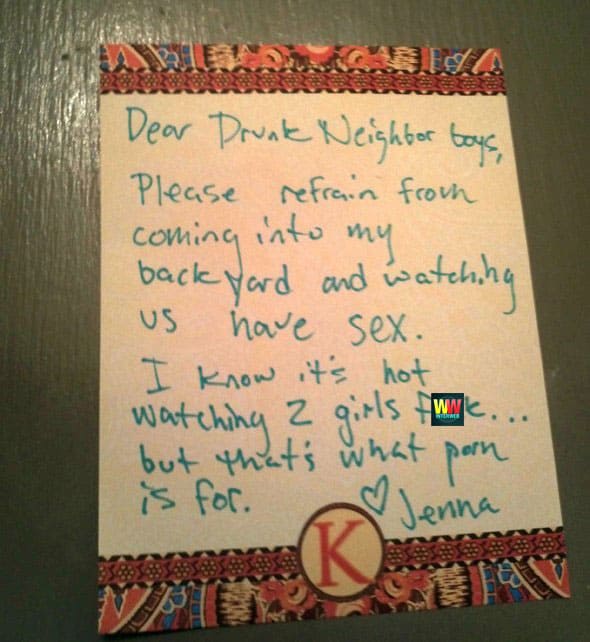 Dear Drunk Neighbor boys,
Please refrain from
coming into my
back yard and watching
us have sex.
I know it's hot
watching 2 girls f
WW
INTERWEB
k...
but that's what porn
is for. ♡ Jenna
K